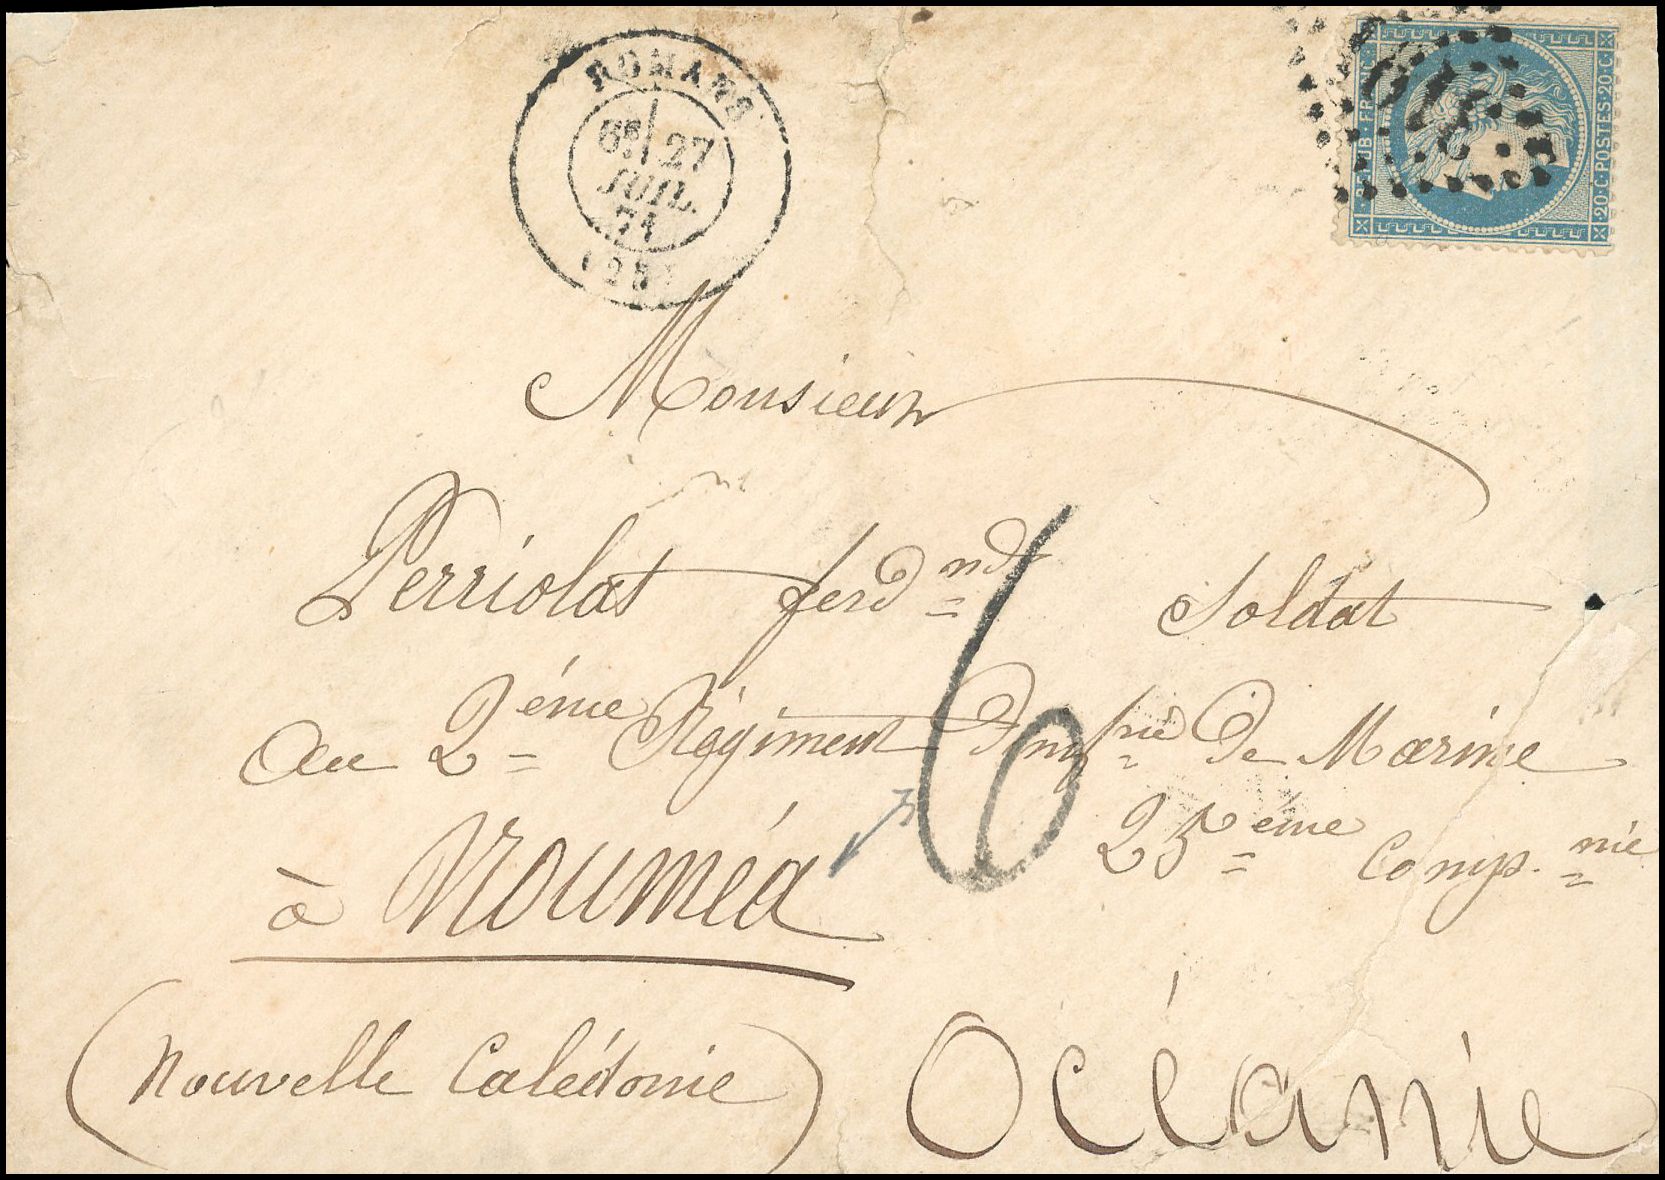 ROMANS
6E 27
JUIL.
71
(25)
RÉPUB. FRANC.
20 C. POSTES. 20 C.
Monsieur
Perriolat ferdnd Soldat
Au 2ème Régiment d'infrie de Marine
25ème Compnie
à Nouméa
6
(Nouvelle Calédonie) Océanie